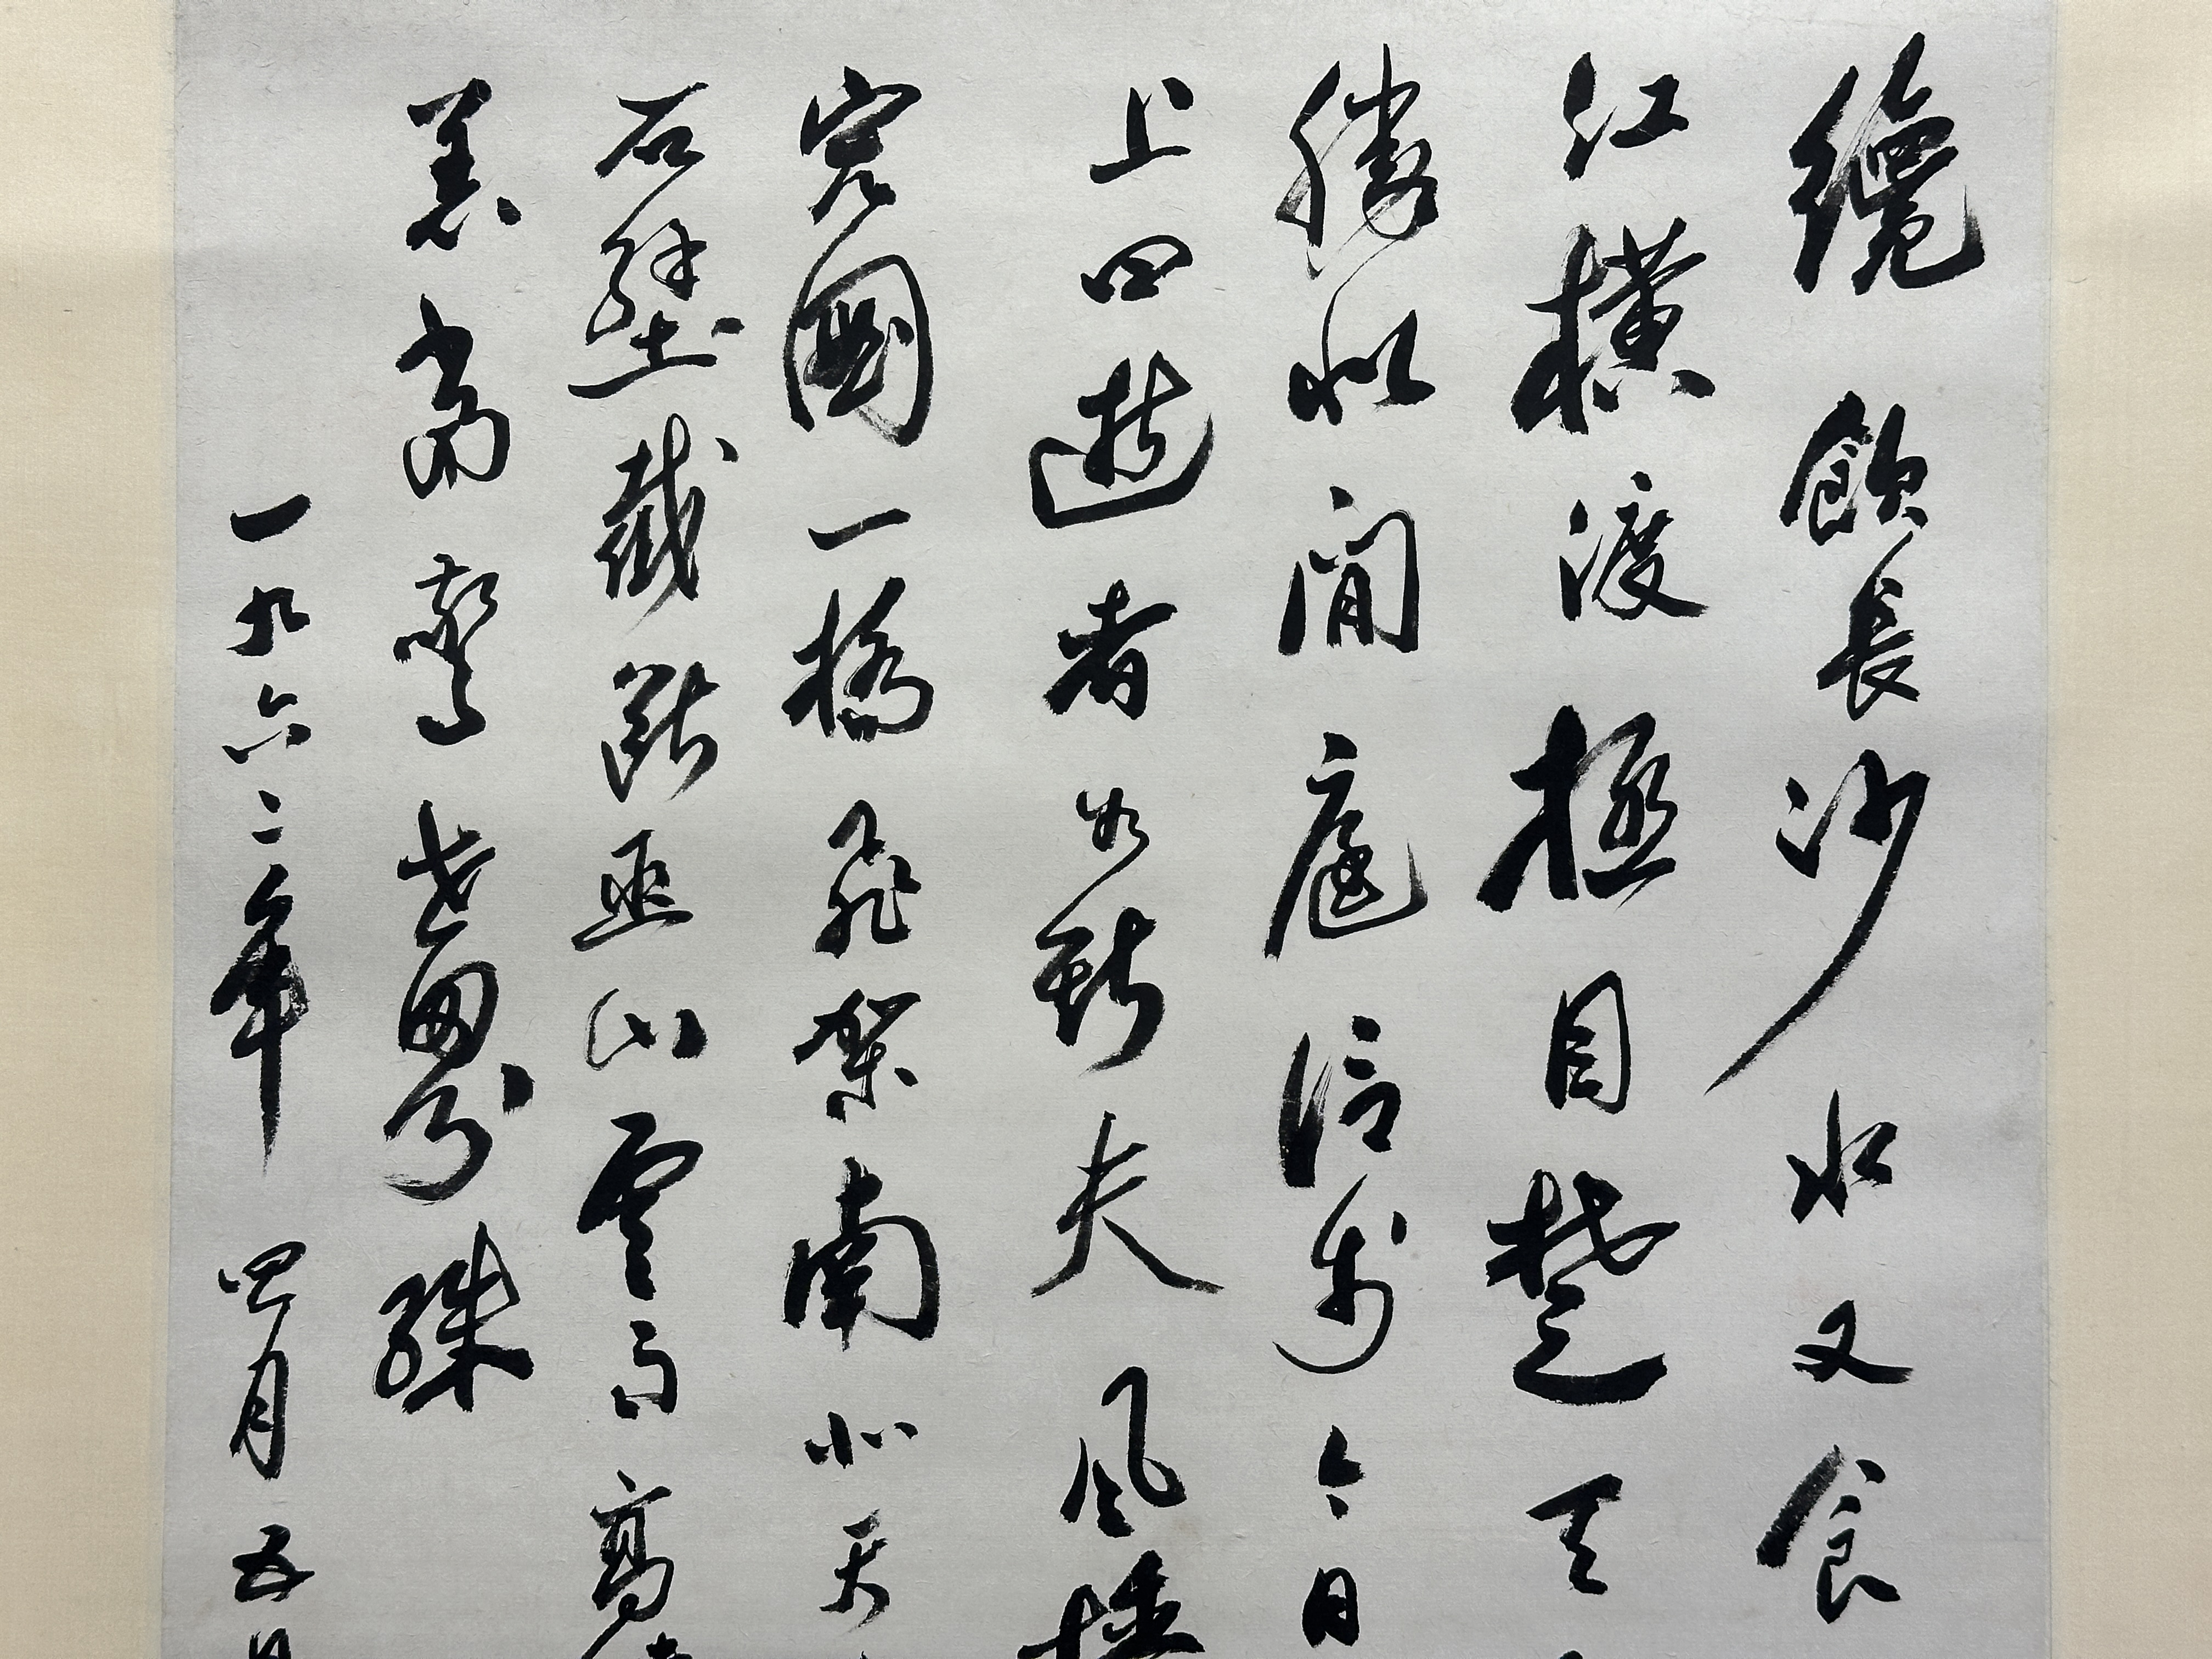 纔飲長沙水又食
江橫渡極目楚天
勝似閒庭信步今日
上曰逝者如斯夫風檣
宏圖一橋飛架南北天
石壁截斷巫山雲雨高
恙當驚世界殊
一九六二年四月五日